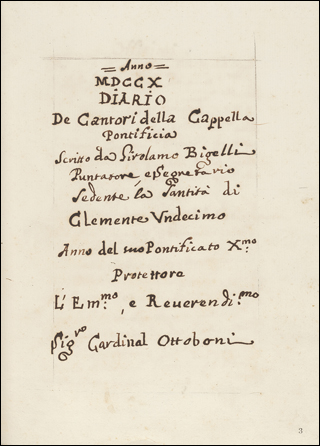 = Anno =
MDCCX
DIARIO
De Cantori della Cappella
Pontificia
Scritto da Girolamo Bigelli
Puntatore e Segretario
Sedente la Santità di
Clemente Undecimo
Anno del suo Pontificato X.mo
Protettore
L'Em.mo, e Reuerendi.mo
Sig.ro Cardinal Ottoboni
3